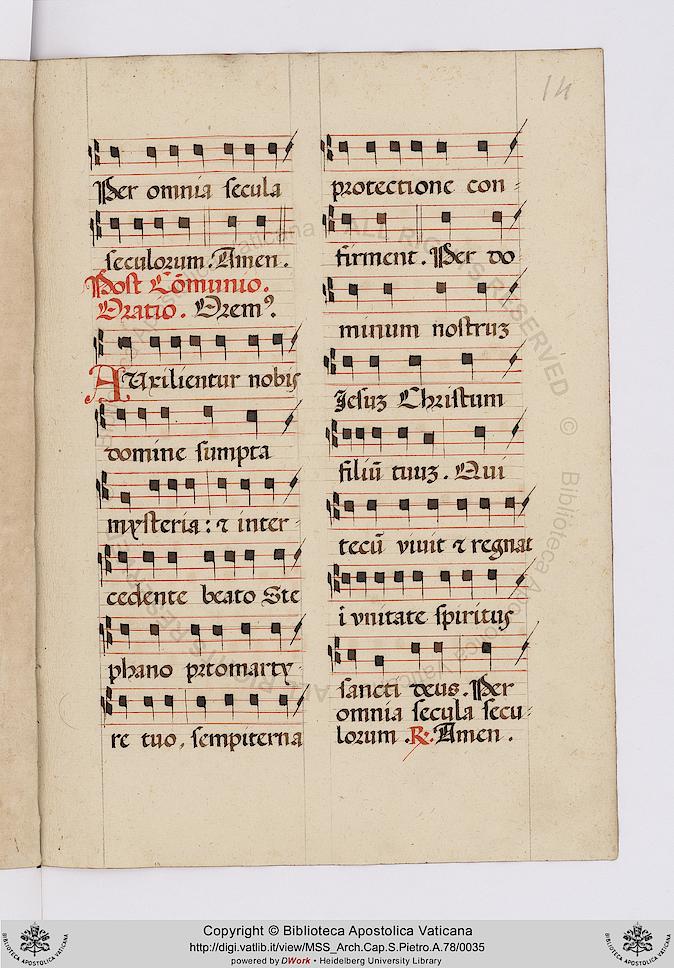 14
Per omnia secula
seculorum. Amen.
Post Cōmunio.
Oratio. Orem⁹.
AUxilientur nobis
domine sumpta
mysteria: ⁊ inter-
cedente beato Ste
phano prtomarty-
re tuo, sempiterna
protectione con-
firment. Per do
minum nostruꝫ
Jesuꝫ Christum
filiū tuuꝫ. Qui
tecū viuit ⁊ regnat
ī vnitate spiritus
sancti deus. Per
omnia secula secu-
lorum. R. Amen.
Copyright © Biblioteca Apostolica Vaticana
http://digi.vatlib.it/view/MSS_Arch.Cap.S.Pietro.A.78/0035
powered by DWork • Heidelberg University Library
BIBLIOTECA APOSTOLICA VATICANA
BIBLIOTECA APOSTOLICA VATICANA